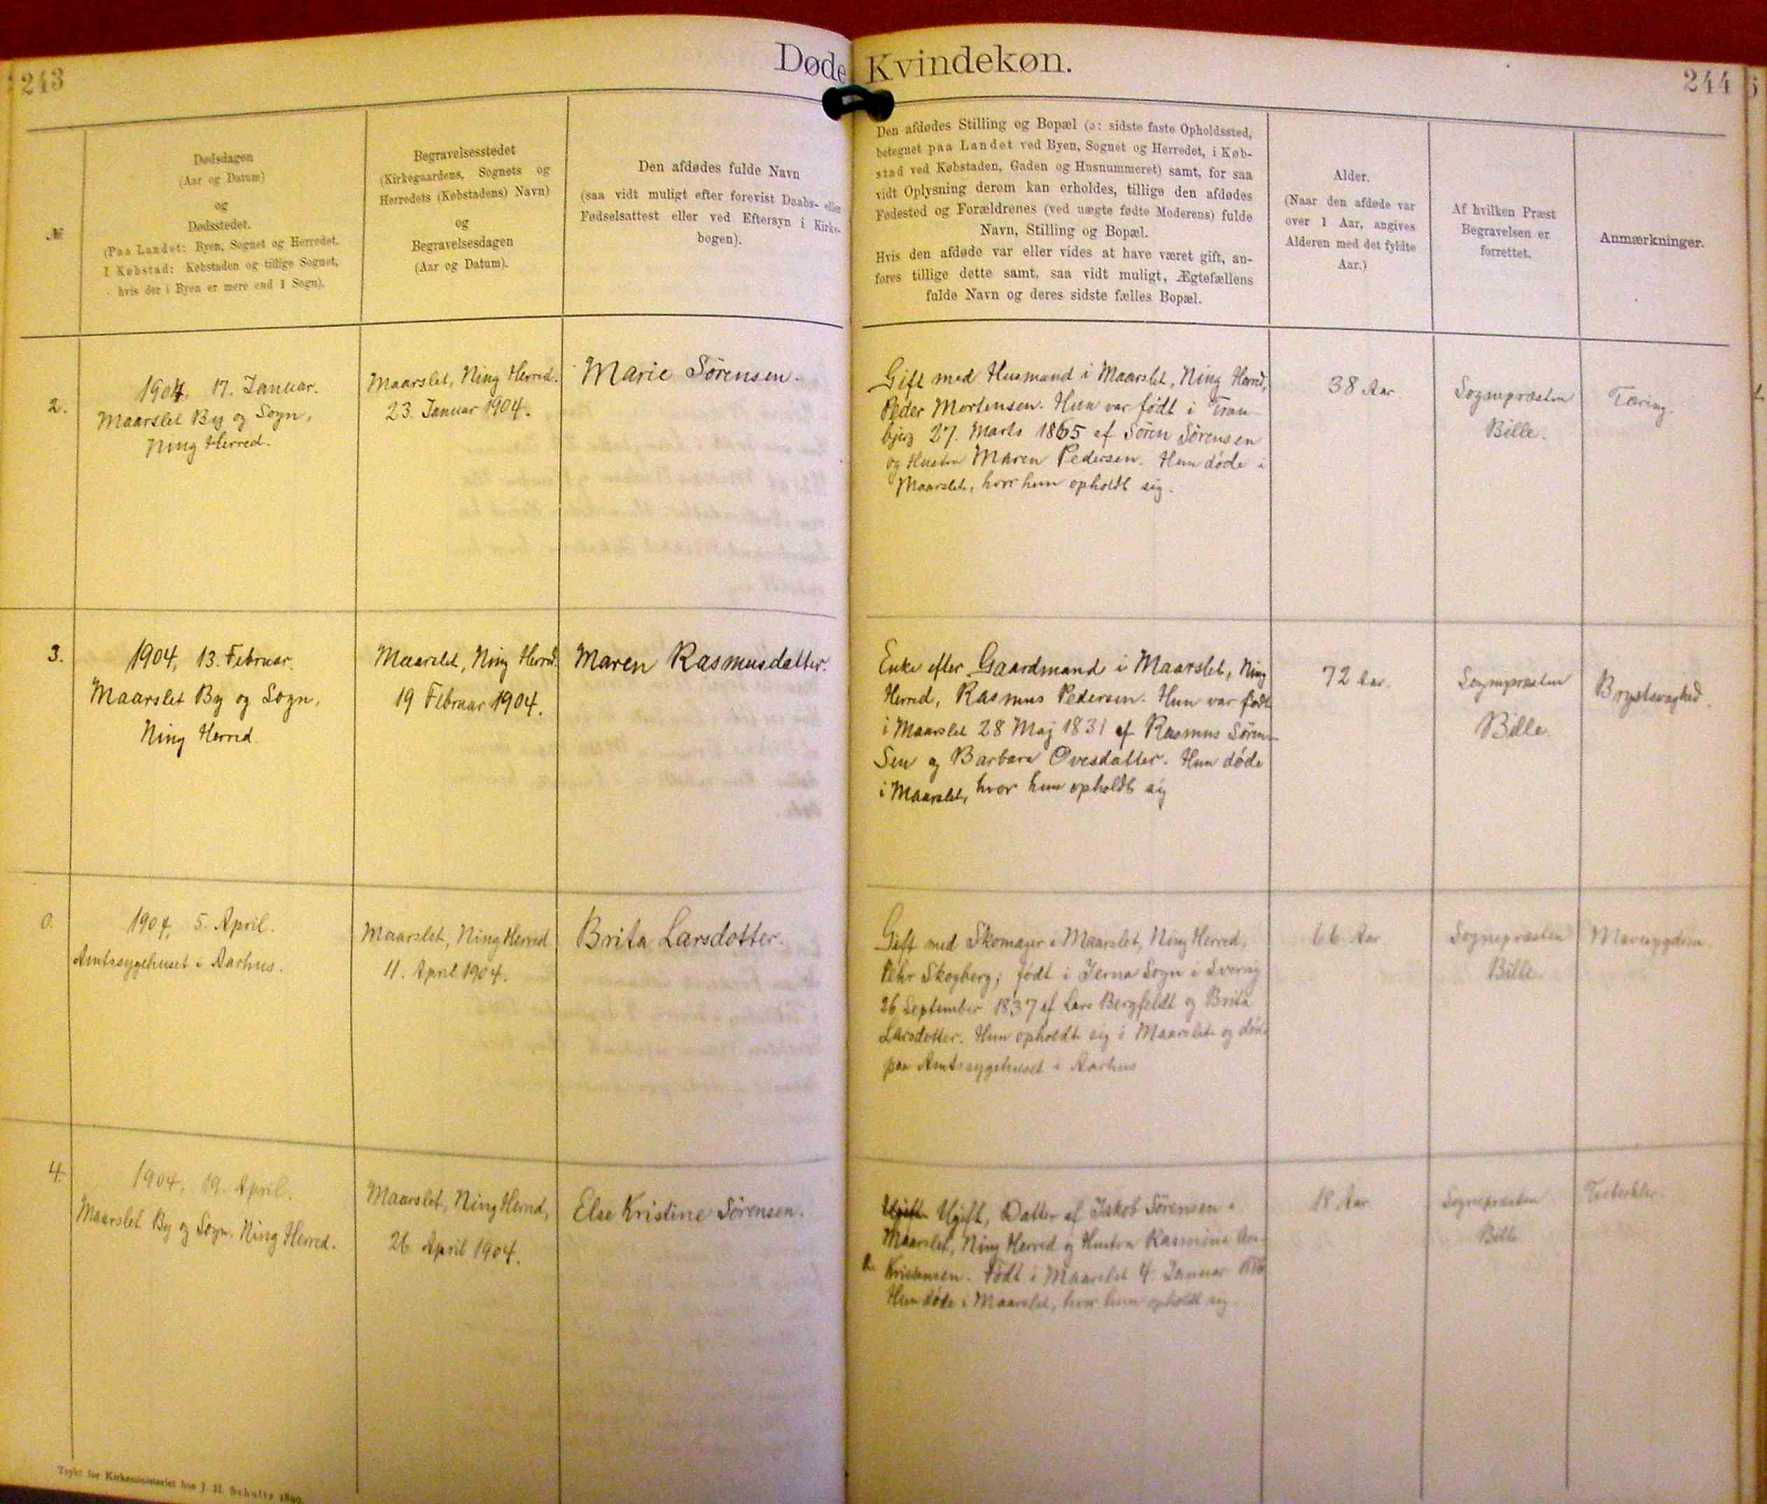 243
Døde Kvindekøn.
244
№
Dødsdagen
(Aar og Datum)
og
Dødsstedet.
(Paa Landet: Byen, Sognet og Herredet.
I Købstad: Købstaden og tillige Sognet,
hvis der i Byen er mere end 1 Sogn).
Begravelsesstedet
(Kirkegaardens, Sognets og
Herredets (Købstadens) Navn)
og
Begravelsesdagen
(Aar og Datum).
Den afdødes fulde Navn
(saa vidt muligt efter forevist Daabs- eller
Fødselsattest eller ved Eftersyn i Kirke-
bogen).
Den afdødes Stilling og Bopæl (ɔ: sidste faste Opholdssted,
betegnet paa Landet ved Byen, Sognet og Herredet, i Køb-
stad ved Købstaden, Gaden og Husnummeret) samt, for saa
vidt Oplysning derom kan erholdes, tillige den afdødes
Fødested og Forældrenes (ved uægte fødte Moderens) fulde
Navn, Stilling og Bopæl.
Hvis den afdøde var eller vides at have været gift, an-
føres tillige dette samt, saa vidt muligt, Ægtefællens
fulde Navn og deres sidste fælles Bopæl.
Alder.
(Naar den afdøde var
over 1 Aar, angives
Alderen med det fyldte
Aar.)
Af hvilken Præst
Begravelsen er
forrettet.
Anmærkninger.
2.
1904, 17. Januar.
Maarslet By og Sogn,
Ning Herred.
Maarslet, Ning Herred.
23. Januar 1904.
Marie Sørensen.
Gift med Husmand i Maarslet, Ning Herred,
Peder Mortensen. Hun var født i Tran
bjerg 27. Marts 1865 af Søren Sørensen
og Hustru Maren Pedersen. Hun døde i
Maarslet, hvor hun opholdt sig.
38 Aar
Sognepræsten
Bille.
Tæring.
3.
1904, 13. Februar.
Maarslet By og Sogn,
Ning Herred
Maarslet, Ning Herred.
19 Februar 1904.
Maren Rasmusdatter.
Enke efter Gaardmand i Maarslet, Ning
Herred, Rasmus Pedersen. Hun var født
i Maarslet 28 Maj 1831 af Rasmus Søren-
sen og Barbara Ovesdatter. Hun døde
i Maarslet, hvor hun opholdt sig
72 Aar.
Sognepræsten
Bille.
Brystsvaghed.
0.
1904, 5. April.
Amtssygehuset i Aarhus.
Maarslet, Ning Herred
11. April 1904.
Brita Larsdotter.
Gift med Skomager i Maarslet, Ning Herred,
Pehr Skogberg; født i Jerna Sogn i Sverig
26 September 1837 af Lars Bergfeldt og Brita
Larsdotter. Hun opholdt sig i Maarslet og døde
paa Amtssygehuset i Aarhus
66 Aar
Sognepræsten
Bille.
4.
1904, 19. April.
Maarslet By og Sogn, Ning Herred.
Maarslet, Ning Herred,
26 April 1904.
Else Kristine Sørensen.
Ugift, Datter af Jakob Sørensen i
Maarslet, Ning Herred og Hustru Rasmine
Kristensen. Født i Maarslet 4. Januar
Hun døde i Maarslet, hvor hun opholdt sig
18 Aar
Sognepræsten
Bille
Trykt for Kirkeministeriet hos J. H. Schultz